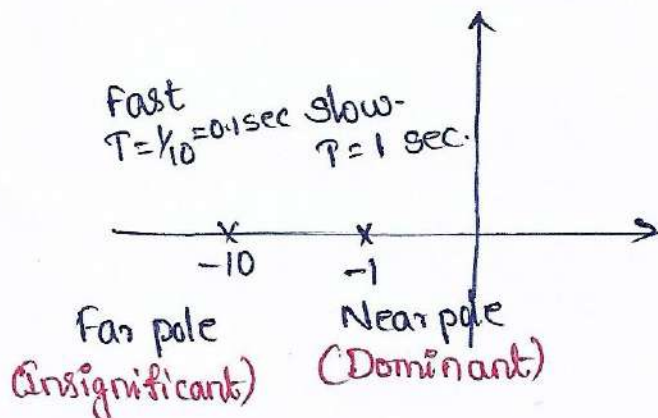 Fast
T=1/10=0.1sec
slow-
T=1 sec.
-10
-1
Far pole
(insignificant)
Near pole
(Dominant)